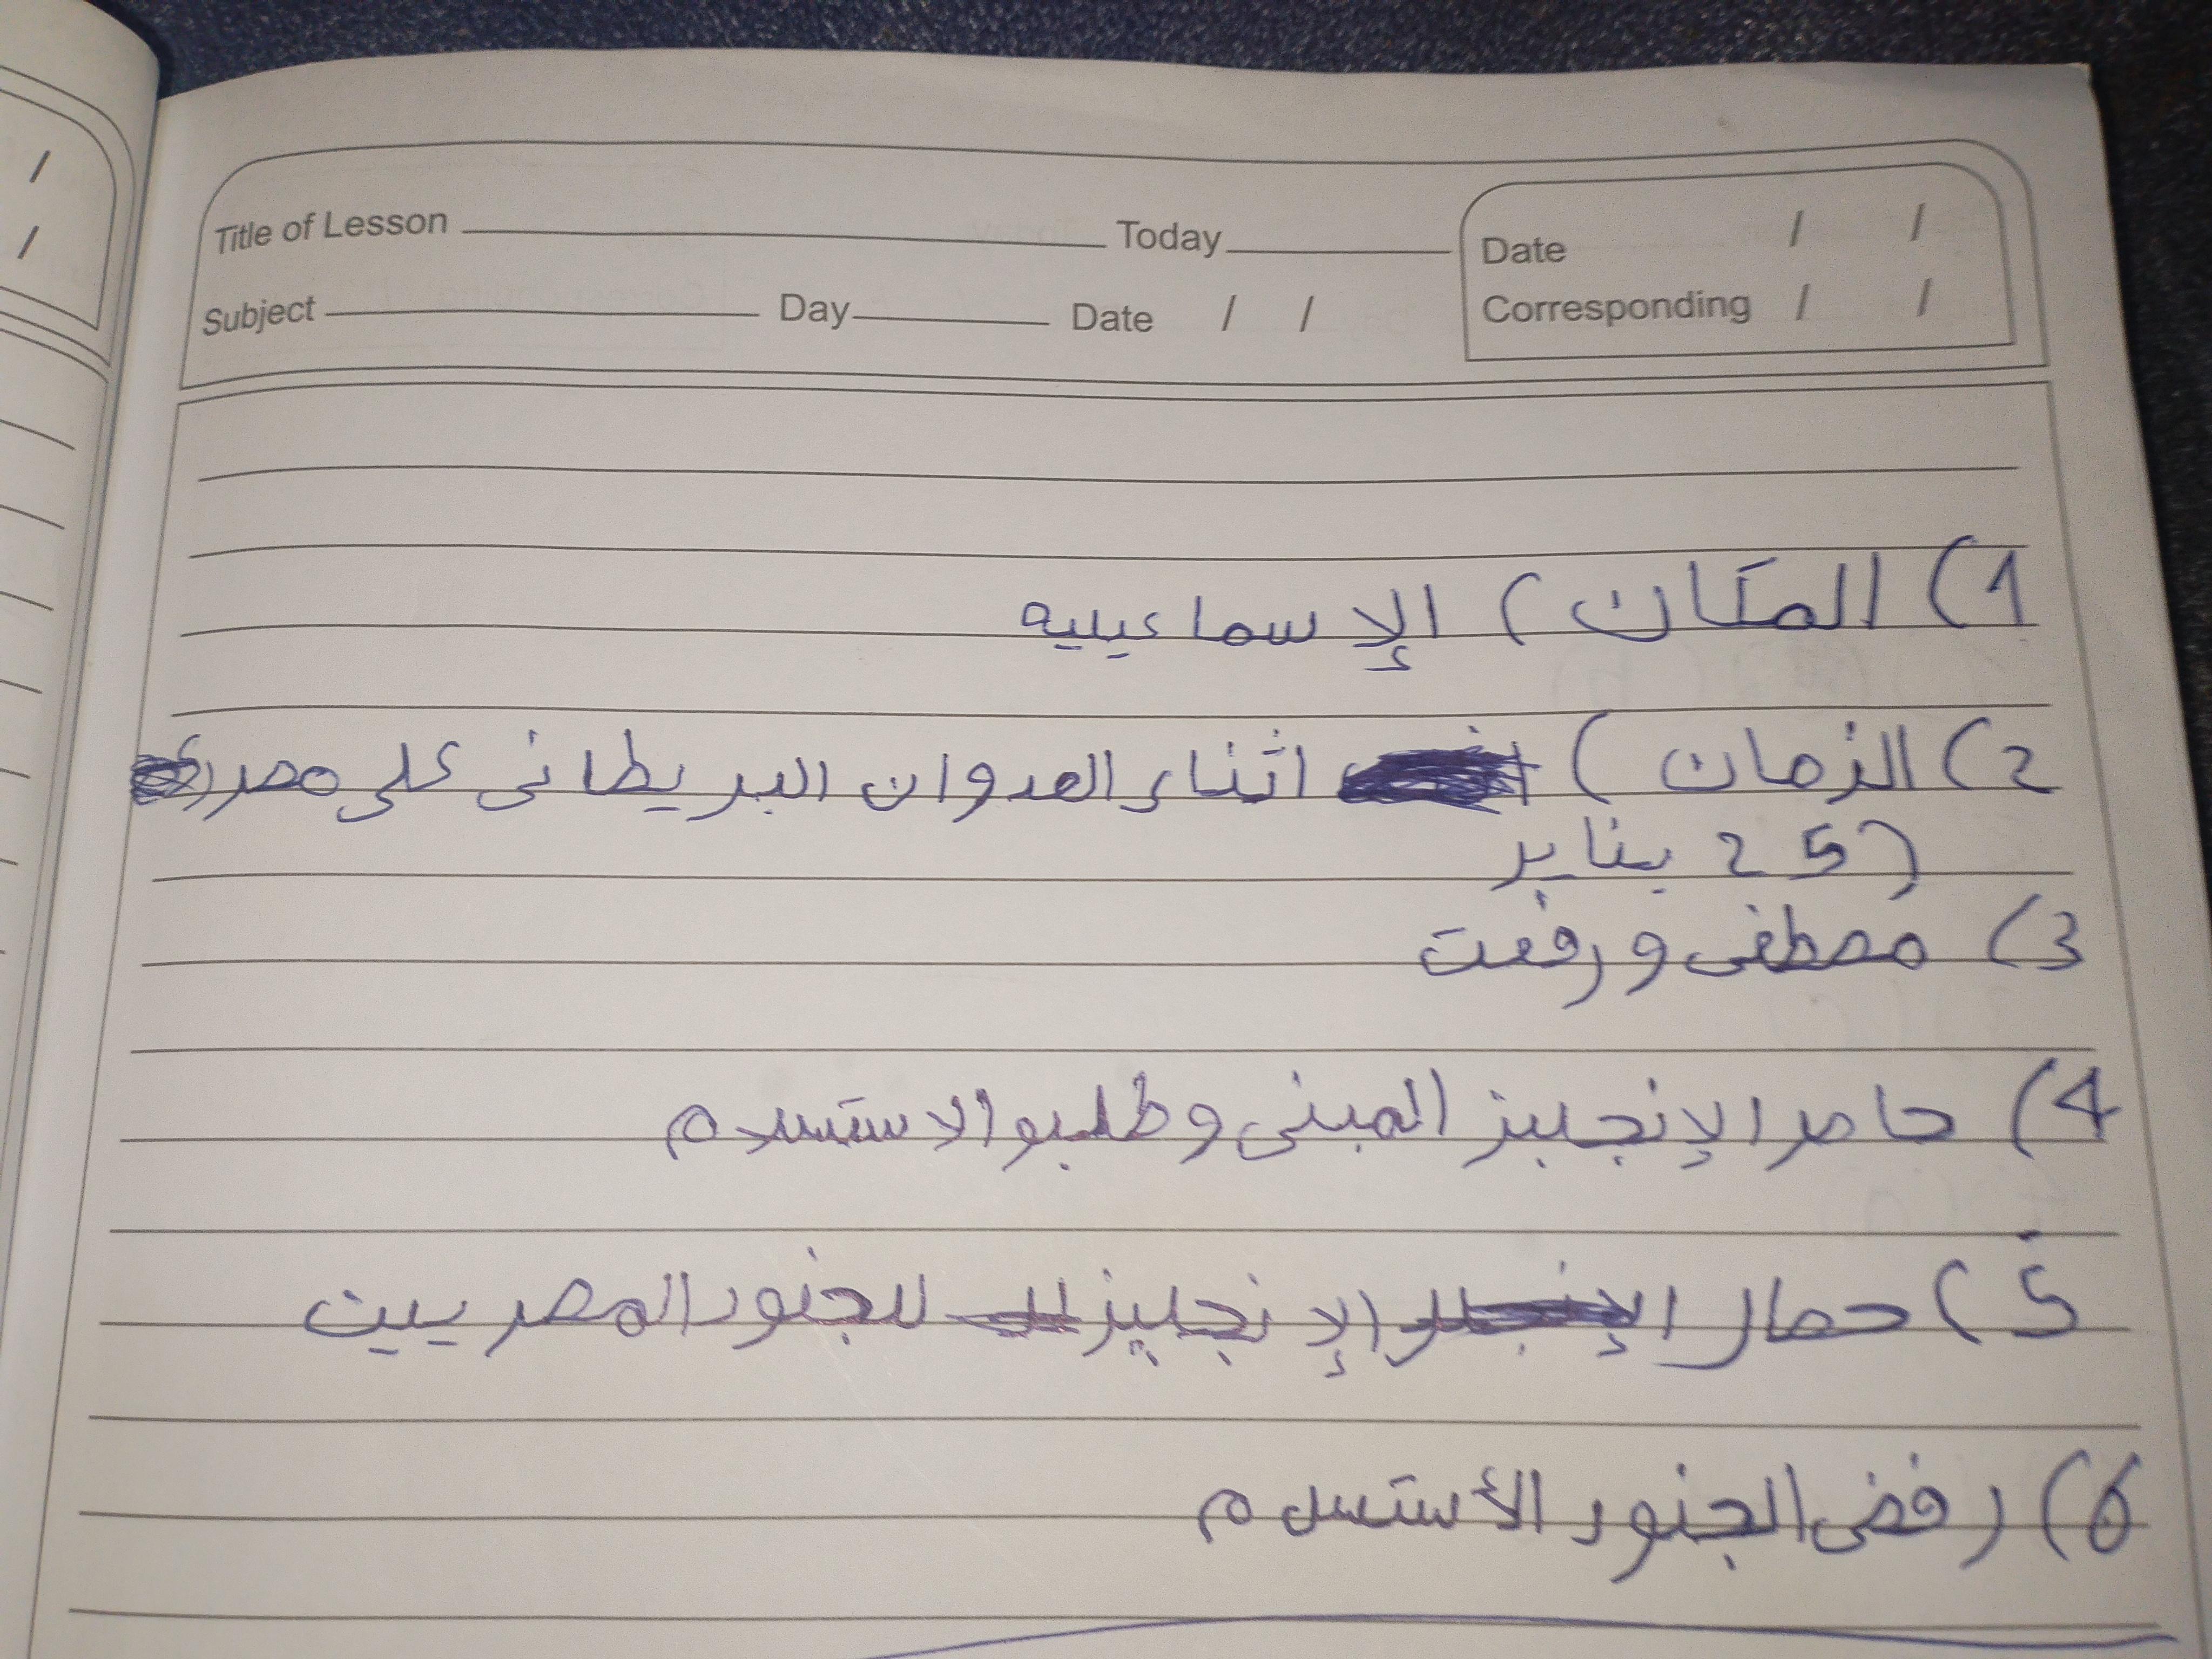 Title of Lesson Today
Date / /
Subject Day Date / /
Corresponding / /
1) المكان) الإسماعيليه
2) الزمان) اثناء العدوان البريطانى على مصر
(25 يناير
3) مصطفى ورفعت
4) حاصر الإنجليز المبنى وطلبو الاستسلام
5) حصار الإنجليز للجنود المصريين
6) رفض الجنود الأستسلام